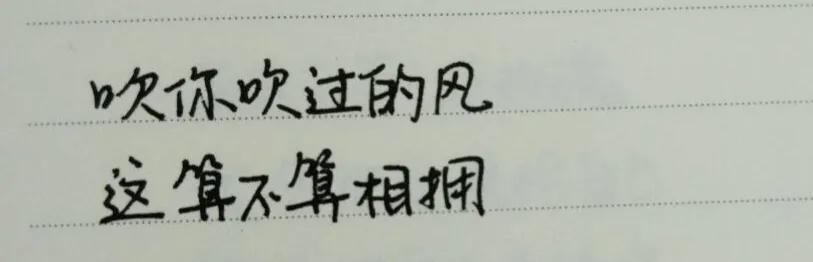 吹你吹过的风
这算不算相拥